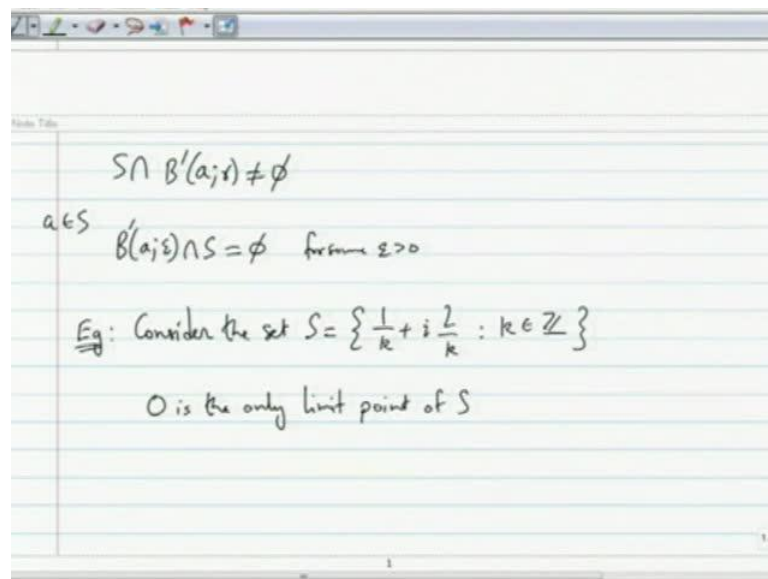 Note Title
S∩ B'(a;r) ≠ ϕ
a ∈ S
B'(a;ε) ∩ S = ϕ for some ε>0
Eg: Consider the set S = { 1/k + i 2/k : k ∈ ℤ }
O is the only limit point of S
1
1